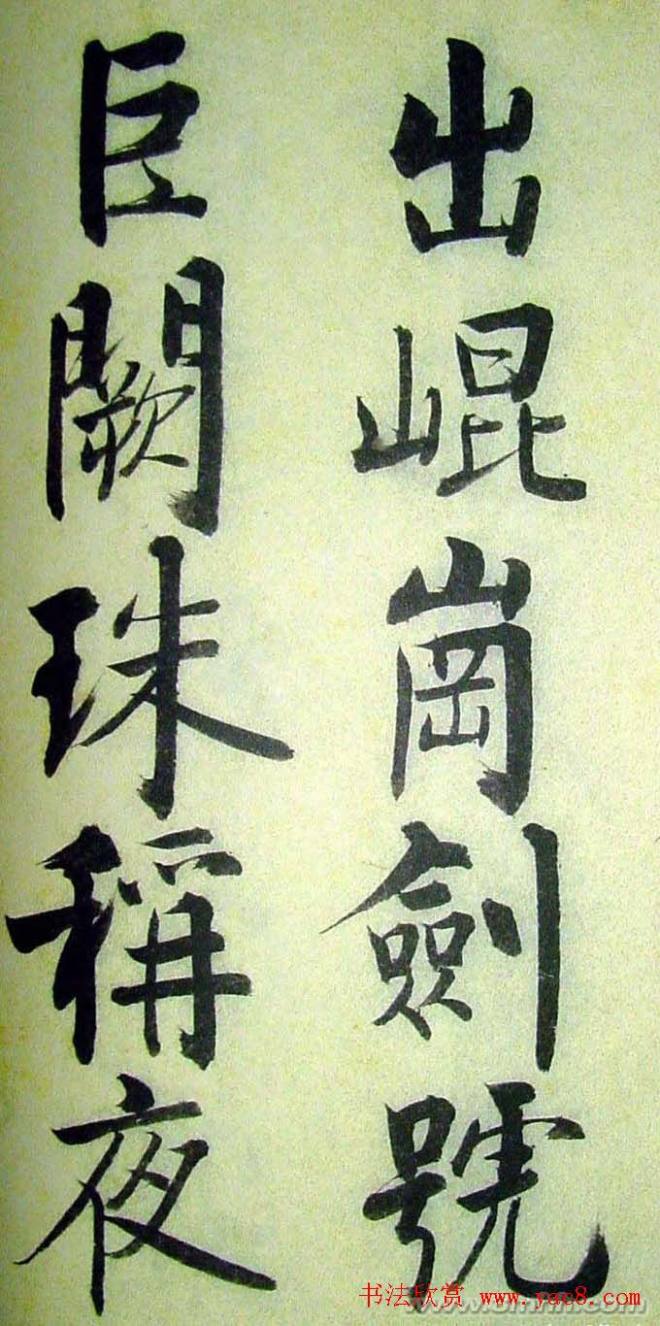 出崐崗劍號
巨闕珠稱夜
书法欣赏 www.yac8.com